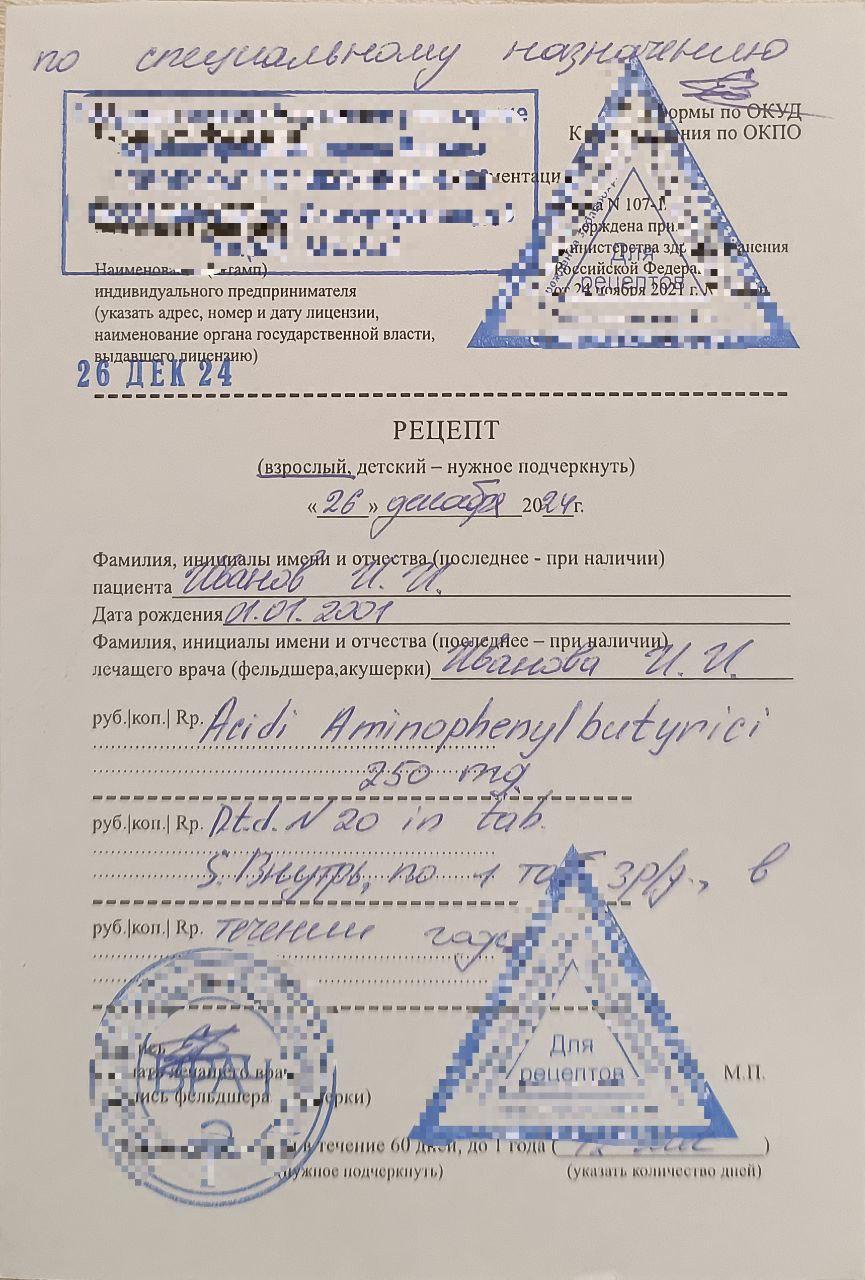 по специальному назначению
формы по ОКУД
ния по ОКПО
N 107-1
Министерства здр нения
Российской Федера
от 24 ноября 2021 г.
Для
рецептов
индивидуального предпринимателя
(указать адрес, номер и дату лицензии,
наименование органа государственной власти,
выдавшего лицензию)
26 ДЕК 24
РЕЦЕПТ
(взрослый, детский – нужное подчеркнуть)
«26» декабря 2024г.
Фамилия, инициалы имени и отчества (последнее - при наличии)
пациента Иванов И. И.
Дата рождения 01.01.2001
Фамилия, инициалы имени и отчества (последнее – при наличии)
лечащего врача (фельдшера,акушерки) Иванова И. И.
руб.|коп.| Rp. Acidi Aminophenylbutyrici
250 mg
руб.|коп.| Rp. D.t.d. N 20 in tab.
S. Внутрь, по 1 таб 3р/д., в
руб.|коп.| Rp. течении года
Для
рецептов
М.П.
ВРАЧ
лечащего врача
фельдшера
в течение 60 дней, до 1 года ( )
(нужное подчеркнуть) (указать количество дней)